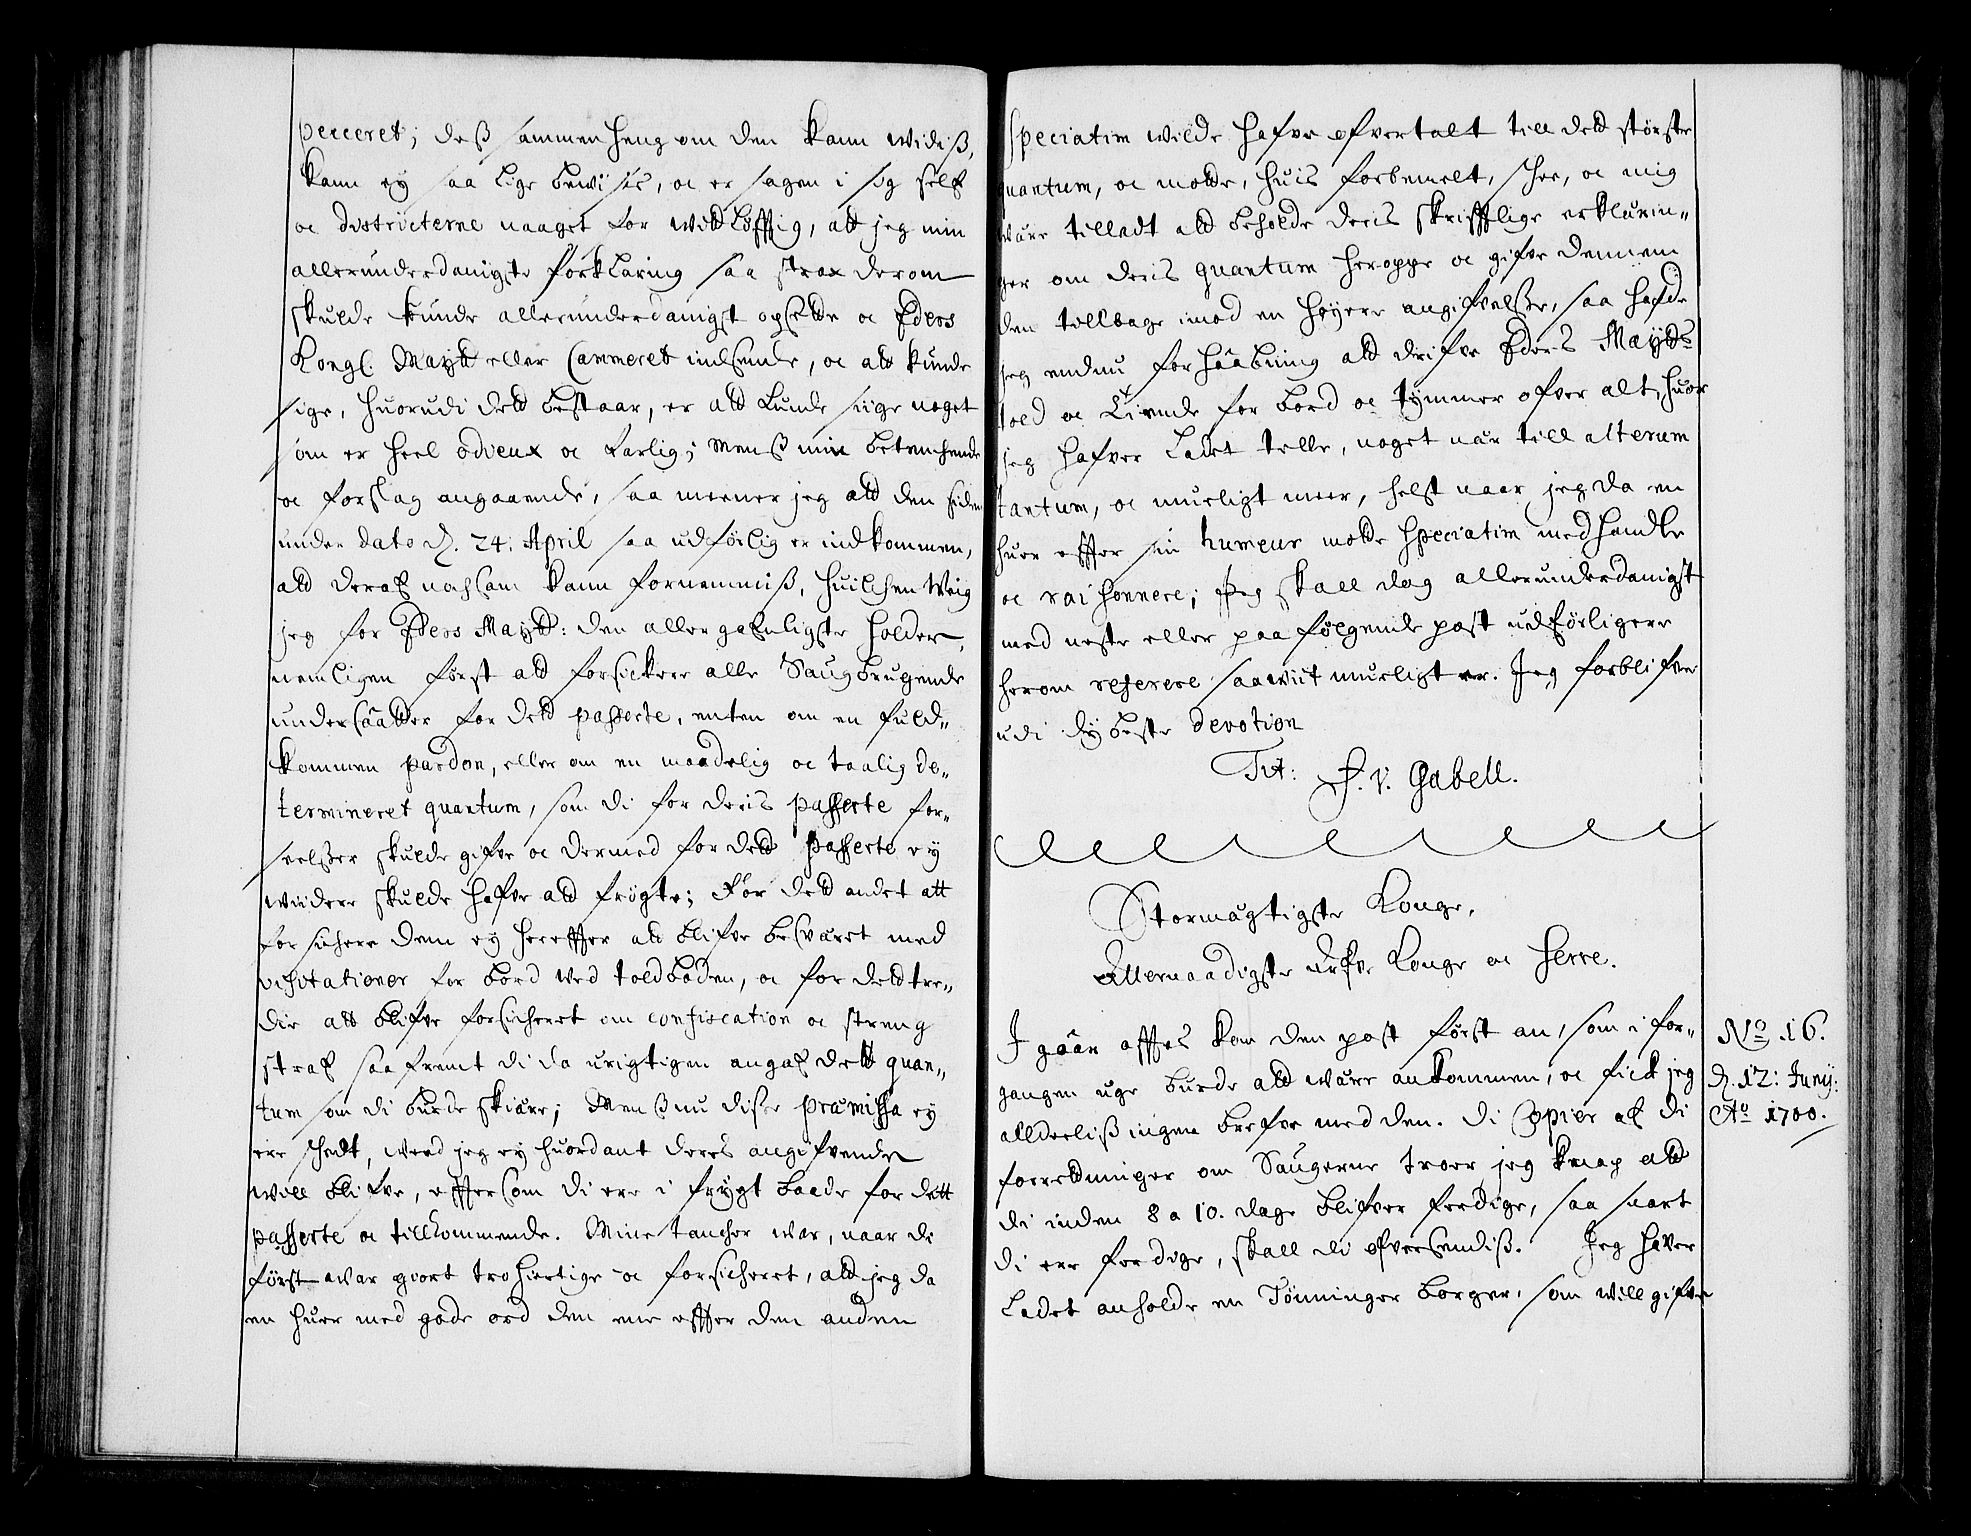 perceret; deß sammenheng om den kann widiß,
kann ey saa lige bewises, oc er sagen i sig self
oc districterne naaget for widtløfftig, att jeg min
allerunderdanigste forklaring saa strax derom
skulde kunde allerunderdanigst opsette oc Eders
Kongl. Maytt eller Cammeret indsende, oc att kunde
sige, huorudi dett bestaar, er att kunde siige noget
som er heel odieux oc farlig; menß min betenchende
oc forslag angaaende, saa meener jeg att den siden
under dato d. 24. April saa udførlig er indkommen,
att deraf nochsom kann fornemmiß, huilchen Weig
jeg for Eders Maytt: den allergafnligste holder,
nemligen først att forsickre alle Saugbrugende
undersaatter for dett passerte, enten om en fuld-
kommen pardon, eller om en maadelig oc taalig de-
termineret quantum, som di for deris passerte for-
seelßer skulde gifve oc dermed for dett passerte ey
widere skulde hafve att frögte; For dett andet att
forsichere dem ey hereffter att blifve besværet med
visitationer for bord ved toldboden, oc for dett tre-
die att blifve forsicheret om confiscation oc streng
straf saa fremt di da urigtigen angaf dett quan-
tum som di burde skiære; Menß nu disse præmissa ey
ere scheedt, weed jeg ey huordant deres angifvende
will blifve, efftersom di ere i frygt baade for dett
passerte oc tillkommende. Mine tancher war, naar di
først war giort trohiertige oc forsicheret, att jeg da
en huer med gode ord den ene effter den anden
speciatim wilde hafve ofvertalt till dett største
quantum, oc motte, huis forbemelt, schee, oc mig
wäre tilladt att beholde deris skrifftlige erklærin-
ger om deris quantum heroppe oc gifve dennem
den tilbage imod en høyere angifvelße, saa hafde
jeg endnu forhaabning att drifve Eders Maytts
told oc tiende for bord oc tymmer ofver alt, huor
jeg hafver ladet telle, noget nær till alterum
tantum, oc mueligt meer, helst naar jeg da en
huer effter sin humeur motte speciatim medhandle
oc raisonnere; Jeg skall dog allerunderdanigst
med neste eller paafølgende post udførligere
herom referere saawiit mueligt er. Jeg forblifver
udi dybeste devotion
Tit: F. v. Gabell.
Stormägtigste Konge,
Allernaadigste Arfve Konge oc Herre.
I gäär afftes kom den post først an, som i for-
gangen uge burde att wäre ankommen, oc fick jeg
alldeeliß ingen brefve med den. Di Copier af di
forretninger om Saugerne troer jeg knap att
di inden 8 a 10. dage blifver ferdige, saa snart
di ere ferdige, skall di ofversendiß. Jeg haver
Ladet anholde en Tönninger borger, som will gifve
No. 16.
d. 12: Junij:
Ao 1700.